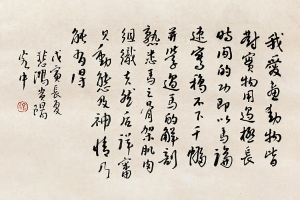 我爱画动物皆
对实物用过极长
时间的功即以马论
速写稿不下千幅
并学过马的解剖
熟悉马之骨架肌肉
组织夫然后详审
其动态及神情乃
能有得
戊寅长夏
悲鸿